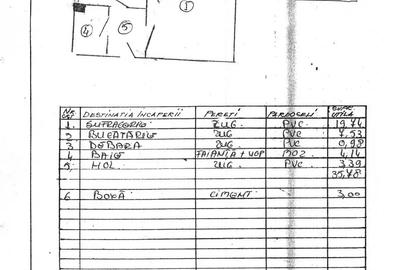 4
5
1
NR CRT DESTINATIA ÎNCAPERII PEREȚI PARDOSELI SUPR. UTILĂ
1. SUFRAGERIE ZUG. PVC. 19,74
2 BUCATARIE ZUG PVC 7,53
3 DEBARA ZUG. PVC 0,98
4 BAIE FAIANȚĂ + VOP MOZ. 4,14
5, HOL ZUG. PVC 3,39
35,78
6 BOXĂ CIMENT 3,00